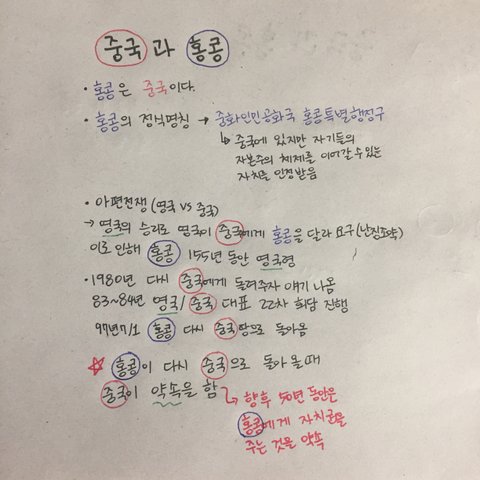 중국과 홍콩
· 홍콩은 중국이다.
· 홍콩의 정식명칭 → 중화인민공화국 홍콩특별행정구
↳ 중국에 있지만 자기들의
자본주의 체제를 이어갈 수 있는
자치를 인정받음
· 아편전쟁 (영국 vs 중국)
→ 영국의 승리로 영국이 중국에게 홍콩을 달라 요구 (난징조약)
이로 인해 홍콩 155년 동안 영국령
· 1980년 다시 중국에게 돌려주자 얘기 나옴
83~84년 영국/중국 대표 22차 회담 진행
97년 7/1 홍콩 다시 중국향으로 돌아옴
☆ 홍콩이 다시 중국으로 돌아올 때
중국이 약속을 함
↳ 향후 50년 동안은
홍콩에게 자치권을
주는 것을 약속